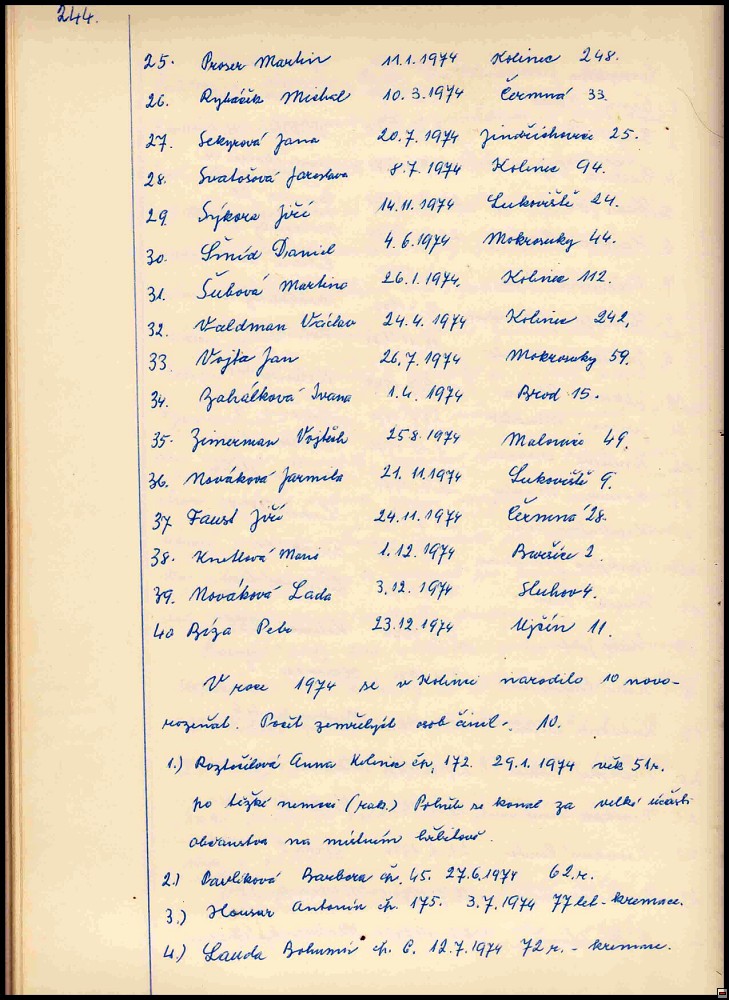 244.
25. Proser Martin 11.1.1974 Kolinec 248.
26. Rybáček Michal 10.3.1974 Čermná 33.
27. Sekyrová Jana 20.7.1974 Jindřichovice 25.
28. Svatošová Jaroslava 8.7.1974 Kolinec 94.
29. Sýkora Jiří 14.11.1974 Lukoviště 24.
30. Šmíd Daniel 4.6.1974 Mokrosuky 44.
31. Šubová Martina 26.1.1974, Kolinec 112.
32. Valdman Václav 24.4.1974 Kolinec 242,
33. Vojta Jan 26.7.1974 Mokrosuky 59.
34. Zahálková Ivana 1.4.1974 Brod 15.
35. Zimerman Vojtěch 25.8.1974 Malonice 49,
36. Nováková Jarmila 21.11.1974 Lukoviště 9.
37 Faust Jiří 24.11.1974 Čermná 28.
38. 1.12.1974 2.
39. Nováková Lada 3.12.1974 Sluhov 4.
40 Bíza Petr 23.12.1974 Ujčín 11.
V roce 1974 se v Kolinci narodilo 10 novo-
rozeňat. Počet zemřelých osob činil - 10.
1.) Roztočilová Anna Kolinec čp. 172. 29.1.1974 věk 51 r.
po těžké nemoci (rak.) Pohřeb se konal za velké účasti
občanstva na místním hřbitově.
2.) Pavlíková Barbora čp. 45. 27.6.1974 62.r.
3.) Housar Antonín čp. 175. 3.7.1974 77 let - kremace.
4.) Lauda Bohumír čp. 6. 12.7.1974 72 r. - kremace.